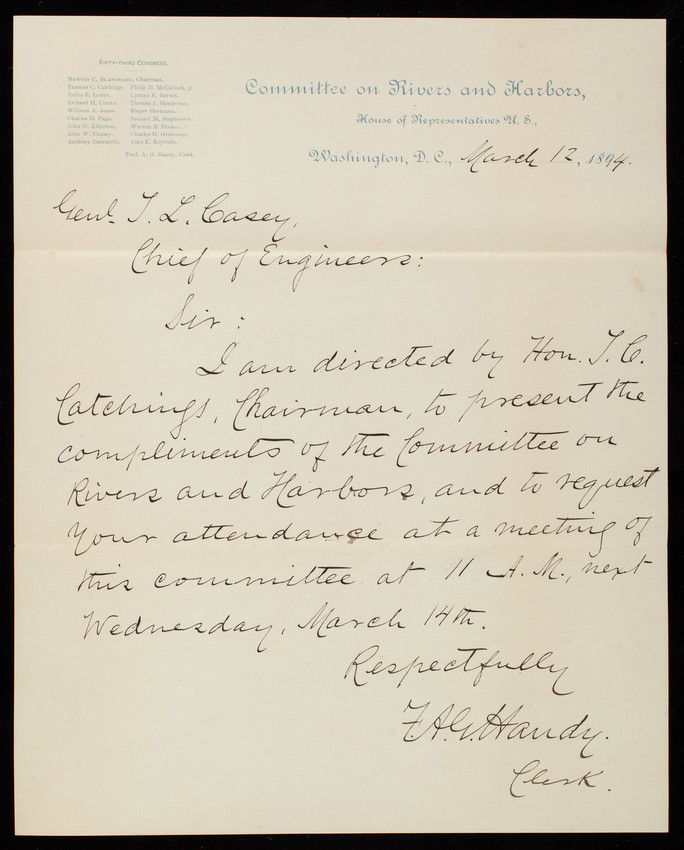 FIFTY-THIRD CONGRESS.
NEWTON C. BLANCHARD, Chairman.
Thomas C. Catchings, Philip D. McCulloch, jr.
Rufus E. Lester,
Richard H. Clarke, Thomas J. Henderson,
William A. Jones, Binger Hermann,
Charles G. Page, Samuel M. Stephenson,
Warren B. Hooker,
John W. Causey, Charles H. Grosvenor
Anthony Caminetti, John E. Reyburn.
Fred. A. G. Handy, Clerk.
Committee on Rivers and Harbors,
House of Representatives U. S.,
Washington, D. C., March 12, 1894.
Genl. T. L. Casey,
Chief of Engineers:
Sir:
I am directed by Hon. T. C.
Catchings, Chairman, to present the
compliments of the Committee on
Rivers and Harbors, and to request
Your attendance at a meeting of
this committee at 11 A. M., next
Wednesday, March 14th.
Respectfully
F.A.G. Handy.
Clerk.